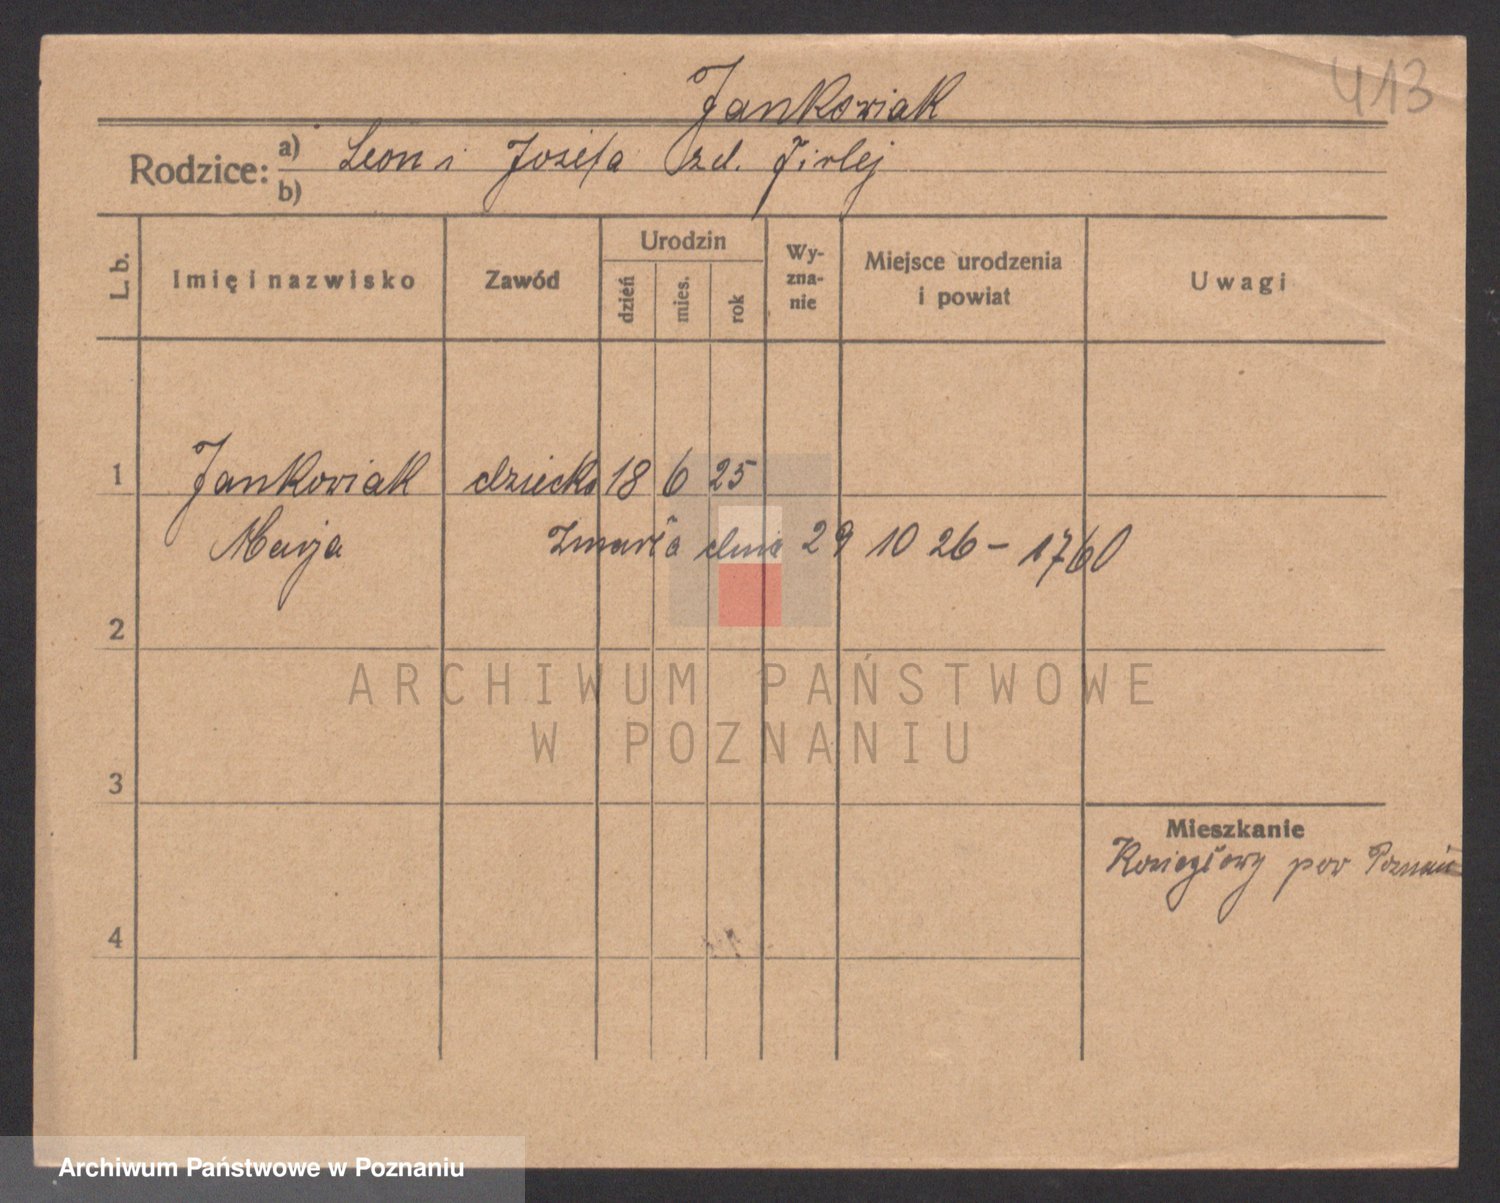 413
Jankowiak
Rodzice: a) Leon i Józefa zd. Firlej
b)
L. b. Imię i nazwisko Zawód Urodzin dzień mies. rok Wy-zna-nie Miejsce urodzenia i powiat Uwagi
1 Jankowiak dziecko 18 6 25
Marja Zmarła dnia 29 10 26 – 1760
2
ARCHIWUM PAŃSTWOWE
W POZNANIU
3
Mieszkanie
Koziegłowy pow Poznań
4
Archiwum Państwowe w Poznaniu